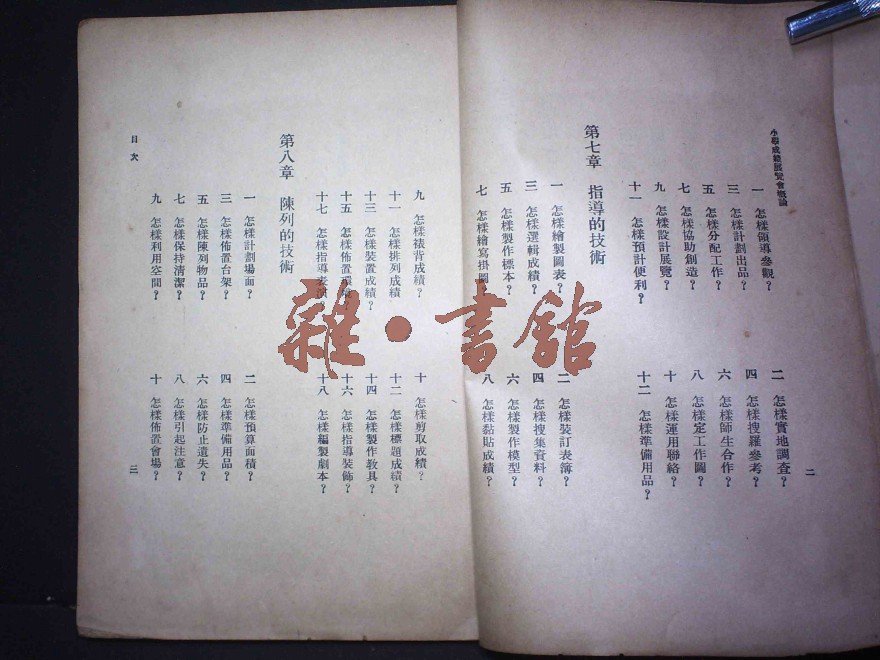 小學成績展覽會概論
二
一 怎樣領導參觀?
二 怎樣實地調查?
三 怎樣計劃出品?
四 怎樣搜羅參考?
五 怎樣分配工作?
六 怎樣師生合作?
七 怎樣協助創造?
八 怎樣定工作圖?
九 怎樣設計展覽?
十 怎樣運用聯絡?
十一 怎樣預計便利?
十二 怎樣準備用品?
第七章 指導的技術
一 怎樣繪製圖表?
二 怎樣裝訂表簿?
三 怎樣選輯成績?
四 怎樣搜集資料?
五 怎樣製作標本?
六 怎樣製作模型?
七 怎樣繪寫掛圖
八 怎樣黏貼成績?
九 怎樣裱背成績?
十 怎樣剪取成績?
十一 怎樣排列成績
十二 怎樣標題成績?
十三 怎樣裝置成績?
十四 怎樣製作教具?
十五 怎樣佈置環
十六 怎樣指導裝飾?
十七 怎樣指導表演
十八 怎樣編製劇本?
第八章 陳列的技術
一 怎樣計劃場面?
二 怎樣預算面積?
三 怎樣佈置台架?
四 怎樣準備用品?
五 怎樣陳列物品?
六 怎樣防止遺失?
七 怎樣保持清潔?
八 怎樣引起注意?
九 怎樣利用空間?
十 怎樣佈置會場?
目次
三
雜·書館